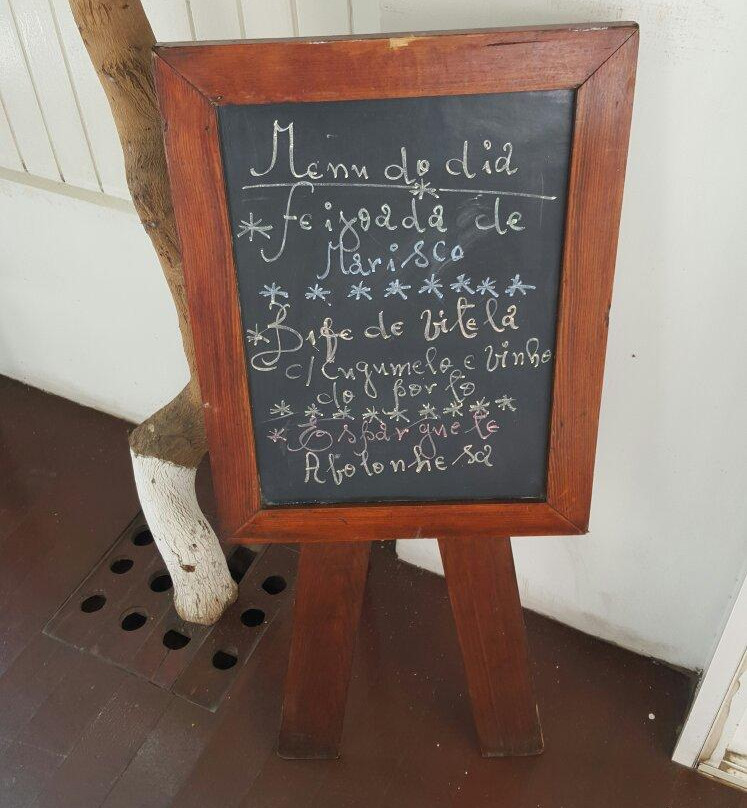 Menu do dia
*
* Feijoada de
Marisco
* * * * * * *
* Bife de Vitela
c/ Cugumelo e Vinho
do porto
* * * * * * * *
* Esparguete
Abolonhesa